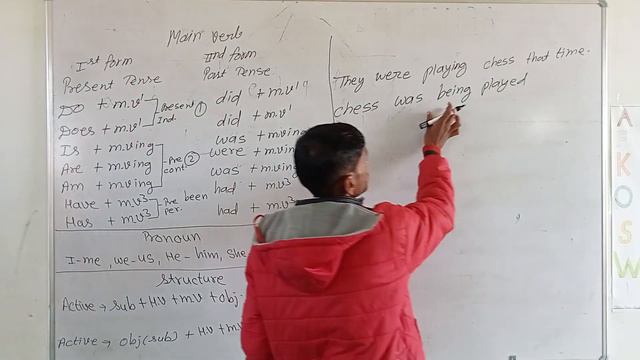 Main Verb
Ist form IInd form
Present Tense Past Tense
Do + m.v¹ Present Ind. ① did + m.v¹
Does + m.v¹ did + m.v¹
Is + m.ving was + m.ving
Are + m.ving Pre cont. ② were + m.ving
Am + m.ving was + m.ving
Have + m.v³ Pre per. been had + m.v³
Has + m.v³ had + m.v³
Pronoun
I-me, we-us, He-him, She
Structure
Active → sub + HV + mv + obj.
Active → obj(sub) + HV + m
They were playing chess that time.
chess was being played
A
K
O
S
W